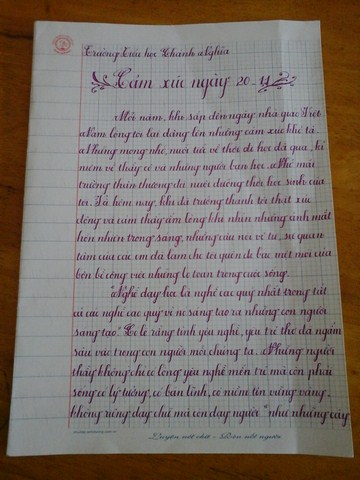 Trường Tiểu học Chánh Nghĩa
Cảm xúc ngày 20-11
Mỗi năm, khi sắp đến ngày nhà giáo Việt
Nam lòng tôi lại dâng lên những cảm xúc khó tả.
Những mong nhớ, nuối trả về thời đi học đã qua, kỉ
niệm về thầy cô và những người bạn học. Nhớ mái
trường thân thương đã nuôi dưỡng thời học sinh của
tôi. Và hôm nay, khi đã trưởng thành tôi thật xúc
động và cảm thấy ấm lòng khi nhìn những ánh mắt
hồn nhiên trong sáng, những câu nói vô tư, sự quan
tâm của các em đã làm cho tôi quên đi bao mệt mỏi của
bộn bề công việc những lo toan trong cuộc sống.
"Nghề dạy học là nghề cao quý nhất trong tất
cả các nghề cao quý vì nó sáng tạo ra những con người
sáng tạo". Có lẽ rằng tình yêu nghề, yêu trẻ thơ đã ngấm
sâu vào trong con người mỗi chúng ta. Những người
thầy không chỉ có lòng yêu nghề mến trẻ mà còn phải
sống có lý tưởng, có bản lĩnh, có niềm tin vững vàng,
không riêng dạy chữ mà còn dạy người "như những cây
Luyện nét chữ - Rèn nết người